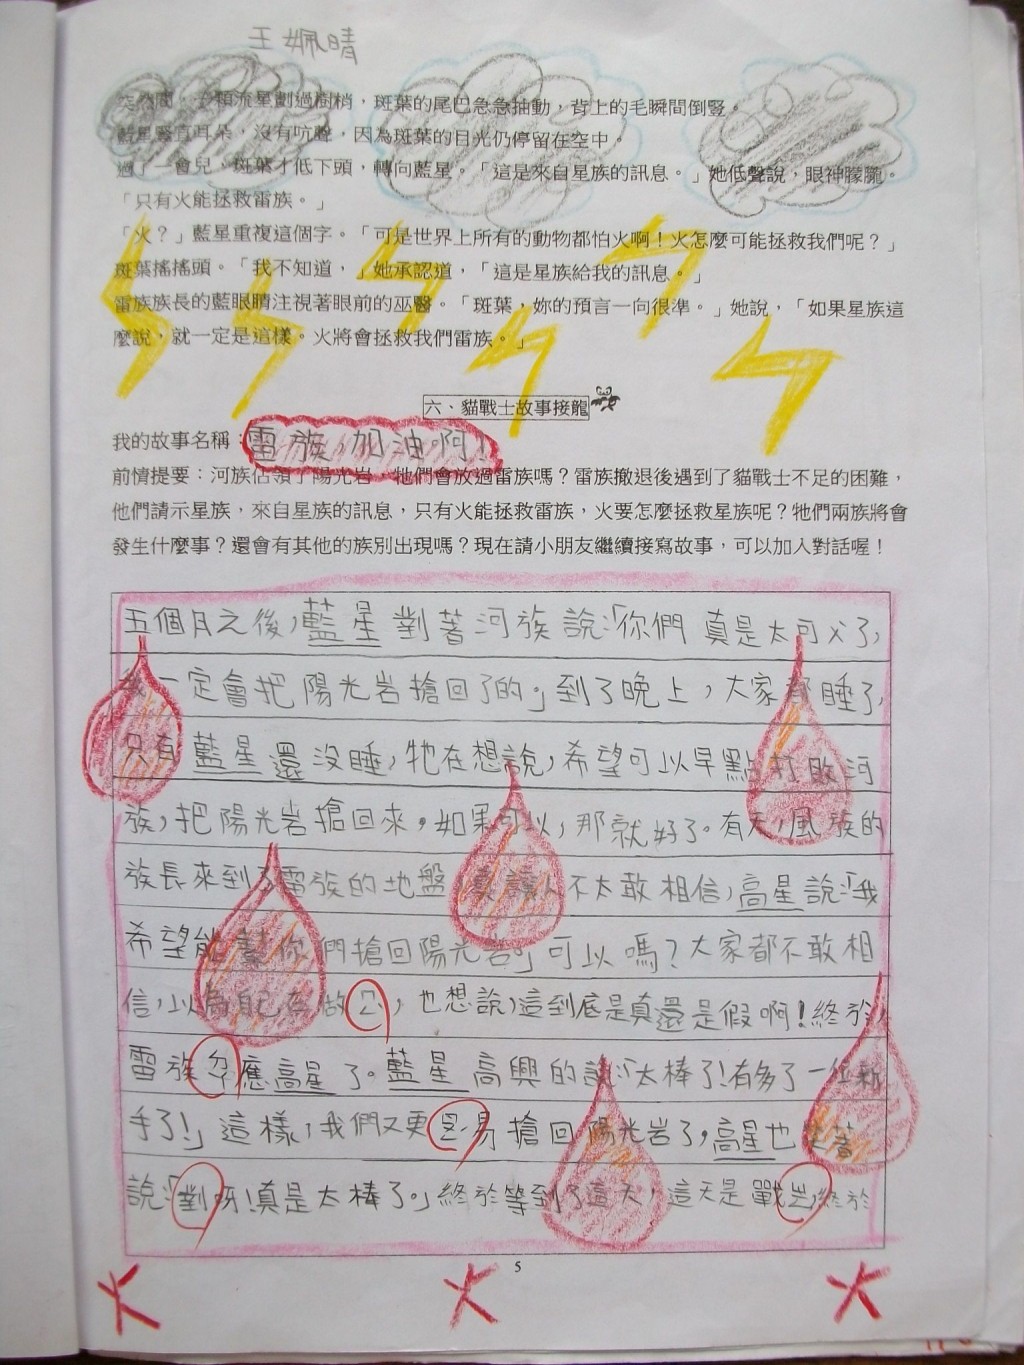 王姵晴
突然間，一顆流星劃過樹梢，斑葉的尾巴急急抽動，背上的毛瞬間倒豎。
藍星豎直耳朵，沒有吭聲，因為斑葉的目光仍停留在空中。
過了一會兒，斑葉才低下頭，轉向藍星。「這是來自星族的訊息。」她低聲說，眼神朦朧。
「只有火能拯救雷族。」
「火？」藍星重複這個字。「可是世界上所有的動物都怕火啊！火怎麼可能拯救我們呢？」
斑葉搖搖頭。「我不知道，」她承認道，「這是星族給我的訊息。」
雷族族長的藍眼睛注視著眼前的巫醫。「斑葉，妳的預言一向很準。」她說，「如果星族這
麼說，就一定是這樣。火將會拯救我們雷族。」
六、貓戰士故事接龍
我的故事名稱：雷族加油啊！
前情提要：河族佔領了陽光岩，牠們會放過雷族嗎？雷族撤退後遇到了貓戰士不足的困難，
他們請示星族，來自星族的訊息，只有火能拯救雷族，火要怎麼拯救星族呢？牠們兩族將會
發生什麼事？還會有其他的族別出現嗎？現在請小朋友繼續接寫故事，可以加入對話喔！
五個月之後，藍星對著河族說：「你們真是太可ㄨ了，
我一定會把陽光岩搶回了的。」到了晚上，大家都睡了，
只有藍星還沒睡，牠在想說，希望可以早點打敗河
族，把陽光岩搶回來，如果可以，那就好了。有天，風族的
族長來到了雷族的地盤，真讓人不太敢相信，高星說：「我
希望能幫你們搶回陽光岩。」可以嗎？大家都不敢相
信，以為自己在做，也想說，這到底是真還是假啊！終於，
雷族應高星了。藍星高興的說：「太棒了！有多了一位新
手了！」這樣，我們又更易搶回陽光岩了，高星也笑著
說：「對呀！真是太棒了。」終於等到了這天，這天是戰，終於
5
火 火 火